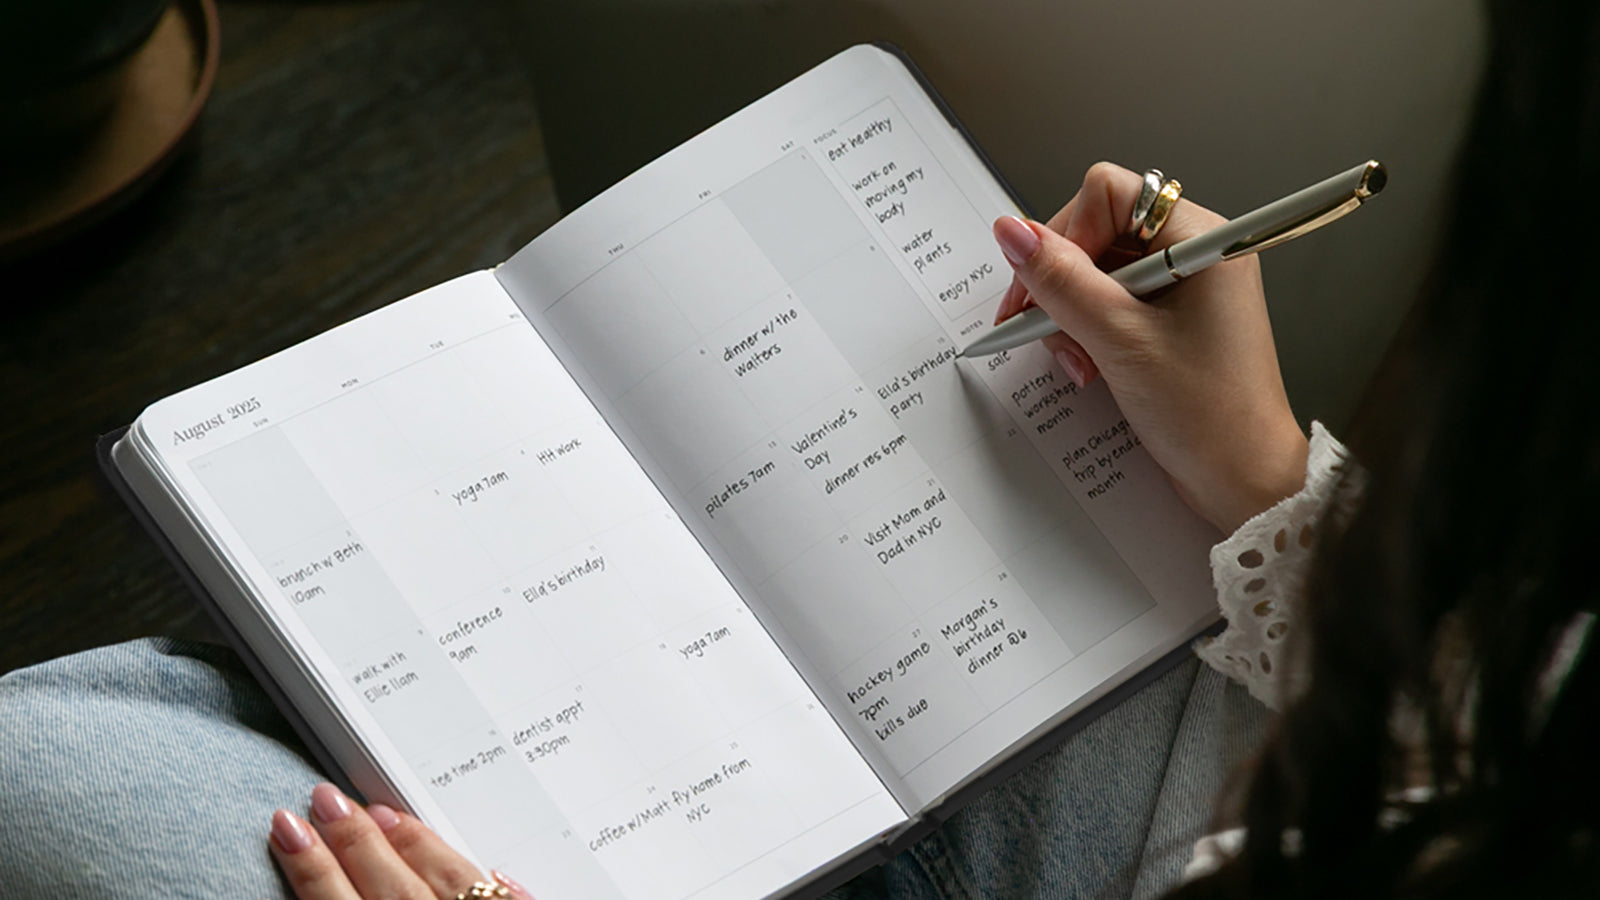 August 2025
SUN
MON
TUE
brunch w/ Beth
10am
walk with
Ellie 11am
tee time 2pm
yoga 7am
conference
9am
dentist appt
3:30pm
coffee w/ Matt
HH work
Ella's birthday
fly home from
NYC
yoga 7am
THU
FRI
SAT
pilates 7am
hockey game
7pm
bills due
dinner w/ the
Walters
Valentine's
Day
dinner res 6pm
Visit Mom and
Dad in NYC
Morgan's
birthday
dinner @6
Ella's birthday
party
FOCUS
eat healthy
work on
moving my
body
water
plants
enjoy NYC
NOTES
sale
pottery
workshop
month
plan Chicago
trip by end
month